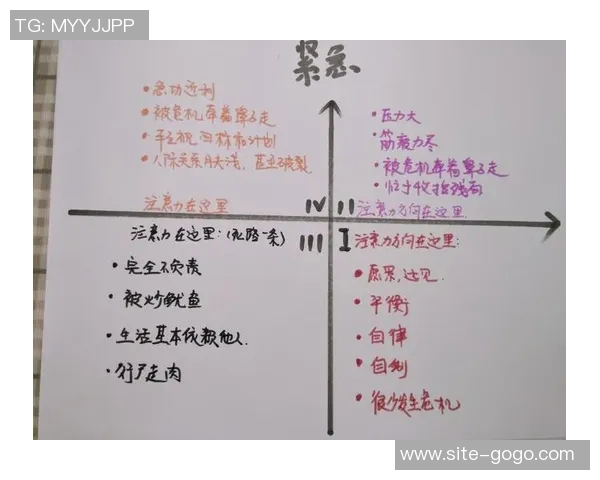 TG: MYYJJPP
紧急
• 急功近利
• 被危机牵着鼻子走
• 轻视目标和计划
• 人际关系肤浅，甚至破裂
注意力在这里
IV
• 压力大
• 筋疲力尽
• 被危机牵着鼻子走
• 忙于收拾残局
II
注意力方向在这里
注意力在这里：(死路一条)
III
• 完全不负责
• 被炒鱿鱼
• 生活基本依赖他人
• 行尸走肉
I
注意力方向在这里：
• 愿景，远见
• 平衡
• 自律
• 自制
• 很少发生危机
www.site-gogo.com